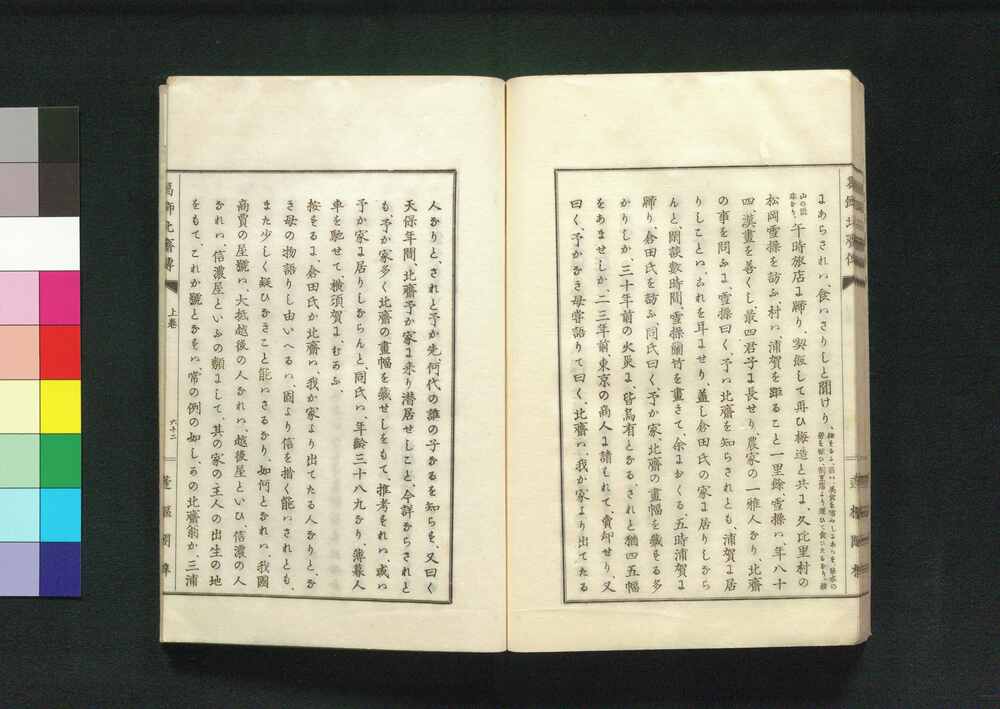 にあらされハ、食ハさりしと聞けり、
午時旅店に歸り、喫飯して再ひ梅造と共に、久比里村の
松岡雪操を訪ふ、村ハ浦賀を距ること一里餘、雪操ハ、年八十
四、漢畫を善くし、最四君子に長せり、農家の一雅人なり、北齋
の事を問ふに、雪操曰く、予ハ北齋を知らされとも、浦賀に居
りしことハ、これを耳にせり、蓋し倉田氏の家に居りしなら
んと、閑談數時間、雪操蘭竹を畫きて、余におくる、五時浦賀に
歸り、倉田氏を訪ふ、同氏曰く、予か家、北齋の畫幅を藏する多
かりしか、三十年前の火災に、皆烏有となる、されと猶四五幅
をあませしか、二三年前、東京の商人に請もれて、賣却せり、又
曰く、予かなき母嘗語りて曰く、北齋ハ、我か家より出てたる
人なりと、されと予か先、何代の誰の子なるを知らす、又曰く
天保年間、北齋予か家に來り潜居せしこと、今詳ならされと
も、予か家多く北齋の畫幅を藏せしをもて、推考すれハ、或ハ
予か家に居りしならんと、同氏ハ、年齡三十八九なり、薄暮人
車を馳せて、横須賀にむかふ、
按するに、倉田氏か北齋ハ、我か家より出てたる人なりと、な
き母の物語りし由いへるハ、固より信を措く能ハされとも、
また少しく疑ひなきこと能ハさるなり、如何となれハ、我國
商賈の屋號ハ、大抵越後の人なれハ、越後屋といひ、信濃の人
なれハ、信濃屋といふの類にして、其の家の主人の出生の地
をもて、これか號となすハ、常の例の如し、かの北齋翁か、三浦
葛飾北齋傳
上卷
六十二